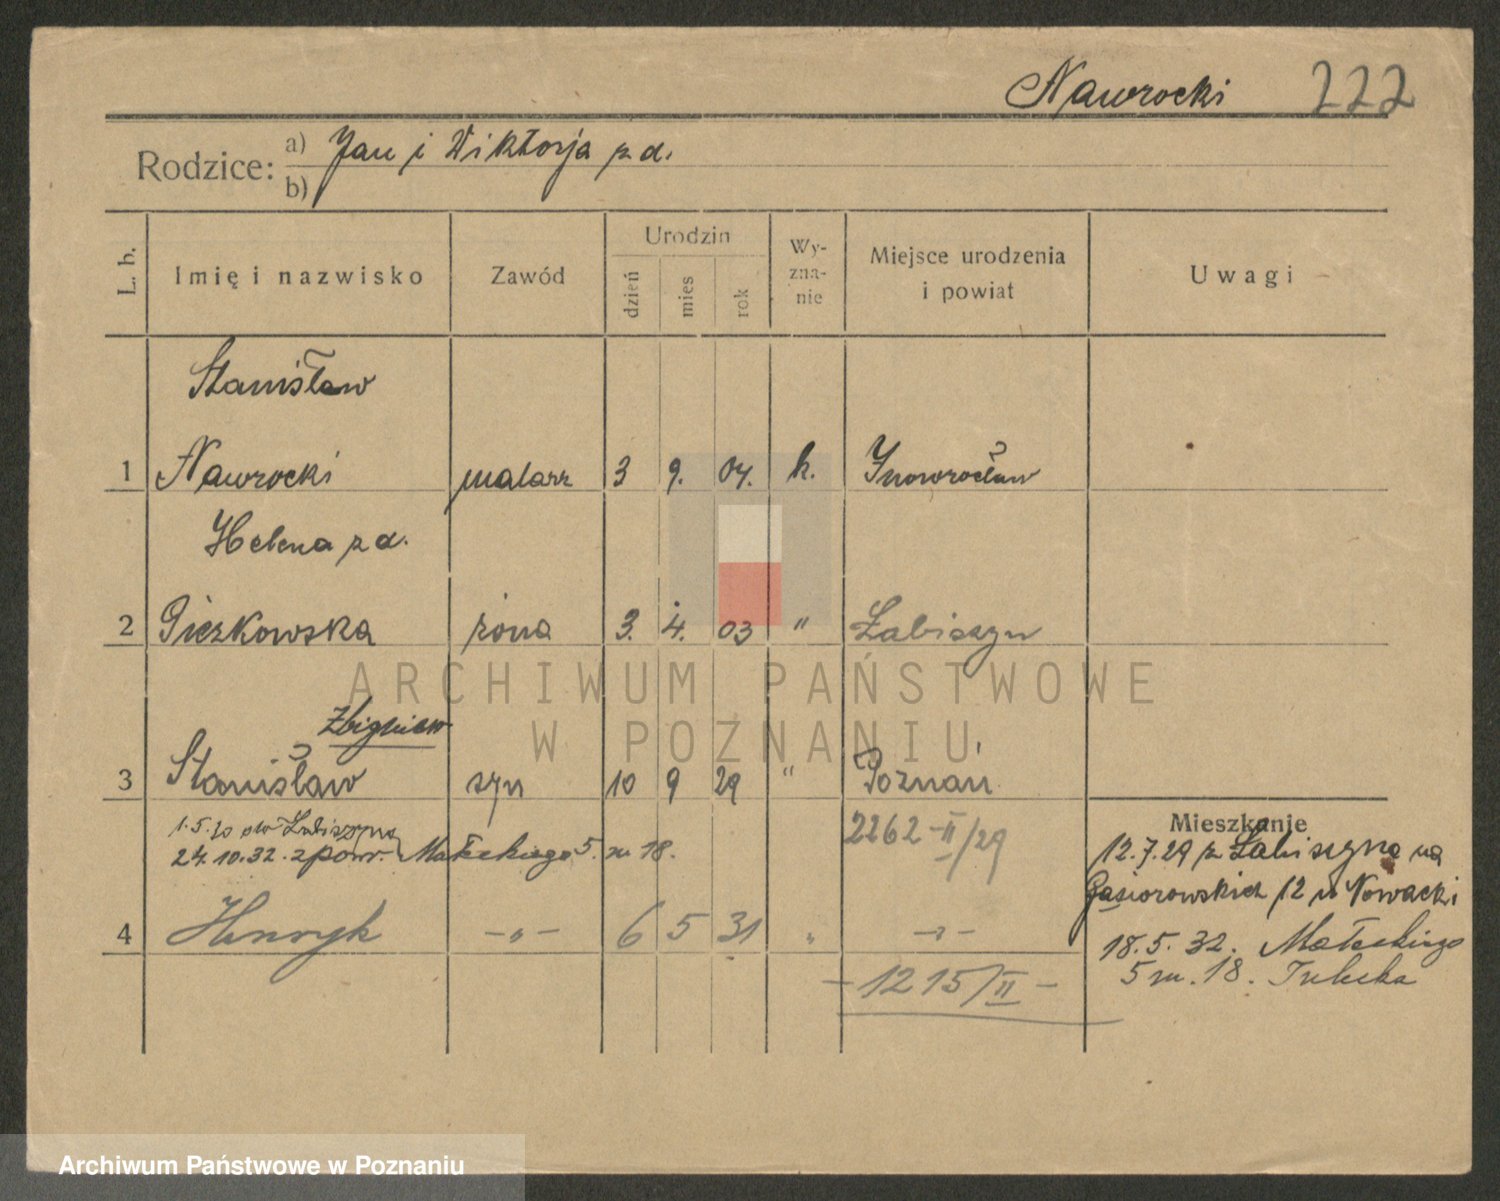 Nawrocki 222
Rodzice: a) Jan i Wiktorja z d.
b)
L. b. Imię i nazwisko Zawód Urodzin dzień mies rok Wyznanie Miejsce urodzenia i powiat Uwagi
Stanisław
1 Nawrocki malarz 3 9. 04. k. Inowrocław
Helena z d.
2 Piczkowska żona 3. 4. 03 " Łabiszyn
ARCHIWUM PAŃSTWOWE
W POZNANIU
Zbigniew
3 Stanisław syn 10 9 29 " Poznań
Mieszkanie
1.5.30 do Łabiszyna
24.10.32. z pow. Małeckiego 5. m 18.
2262-II/29
12.7.29 z Łabiszyna na
Gąsiorowskich 12 u Nowacki
4 Henryk -"- 6 5 31 " -"-
18.5.32. Małeckiego
5 m. 18.
-1215/II-
Archiwum Państwowe w Poznaniu